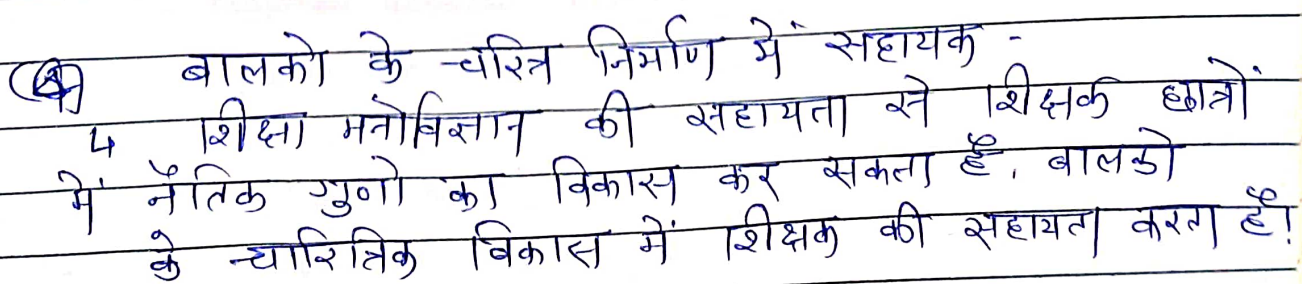 (4) बालको के चरित्र निर्माण में सहायक -
4 शिक्षा मनोविज्ञान की सहायता से शिक्षक छात्रों
में नैतिक गुणो का विकास कर सकता है, बालको
के चारित्रिक विकास में शिक्षक की सहायता करता है!